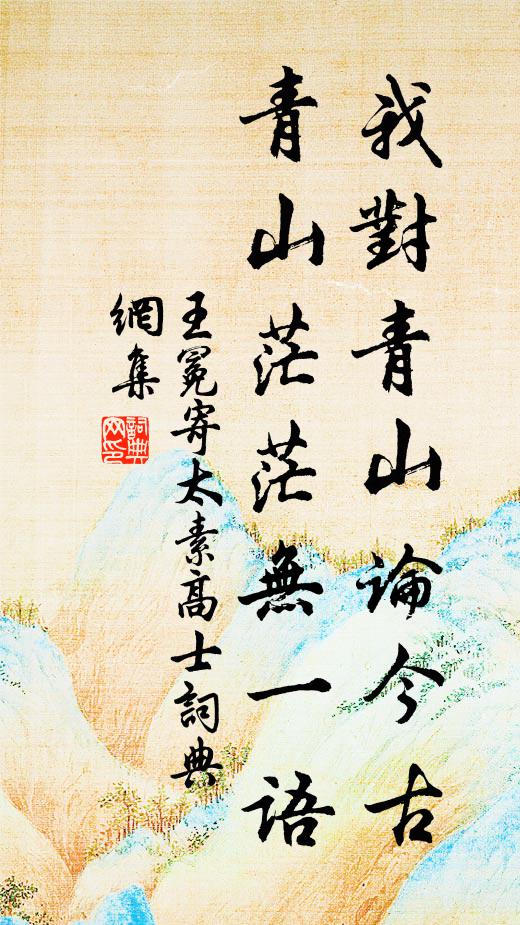 我對青山論今古
青山茫茫無一語
王冕寄太素高士詞典
網集
詞典
网印